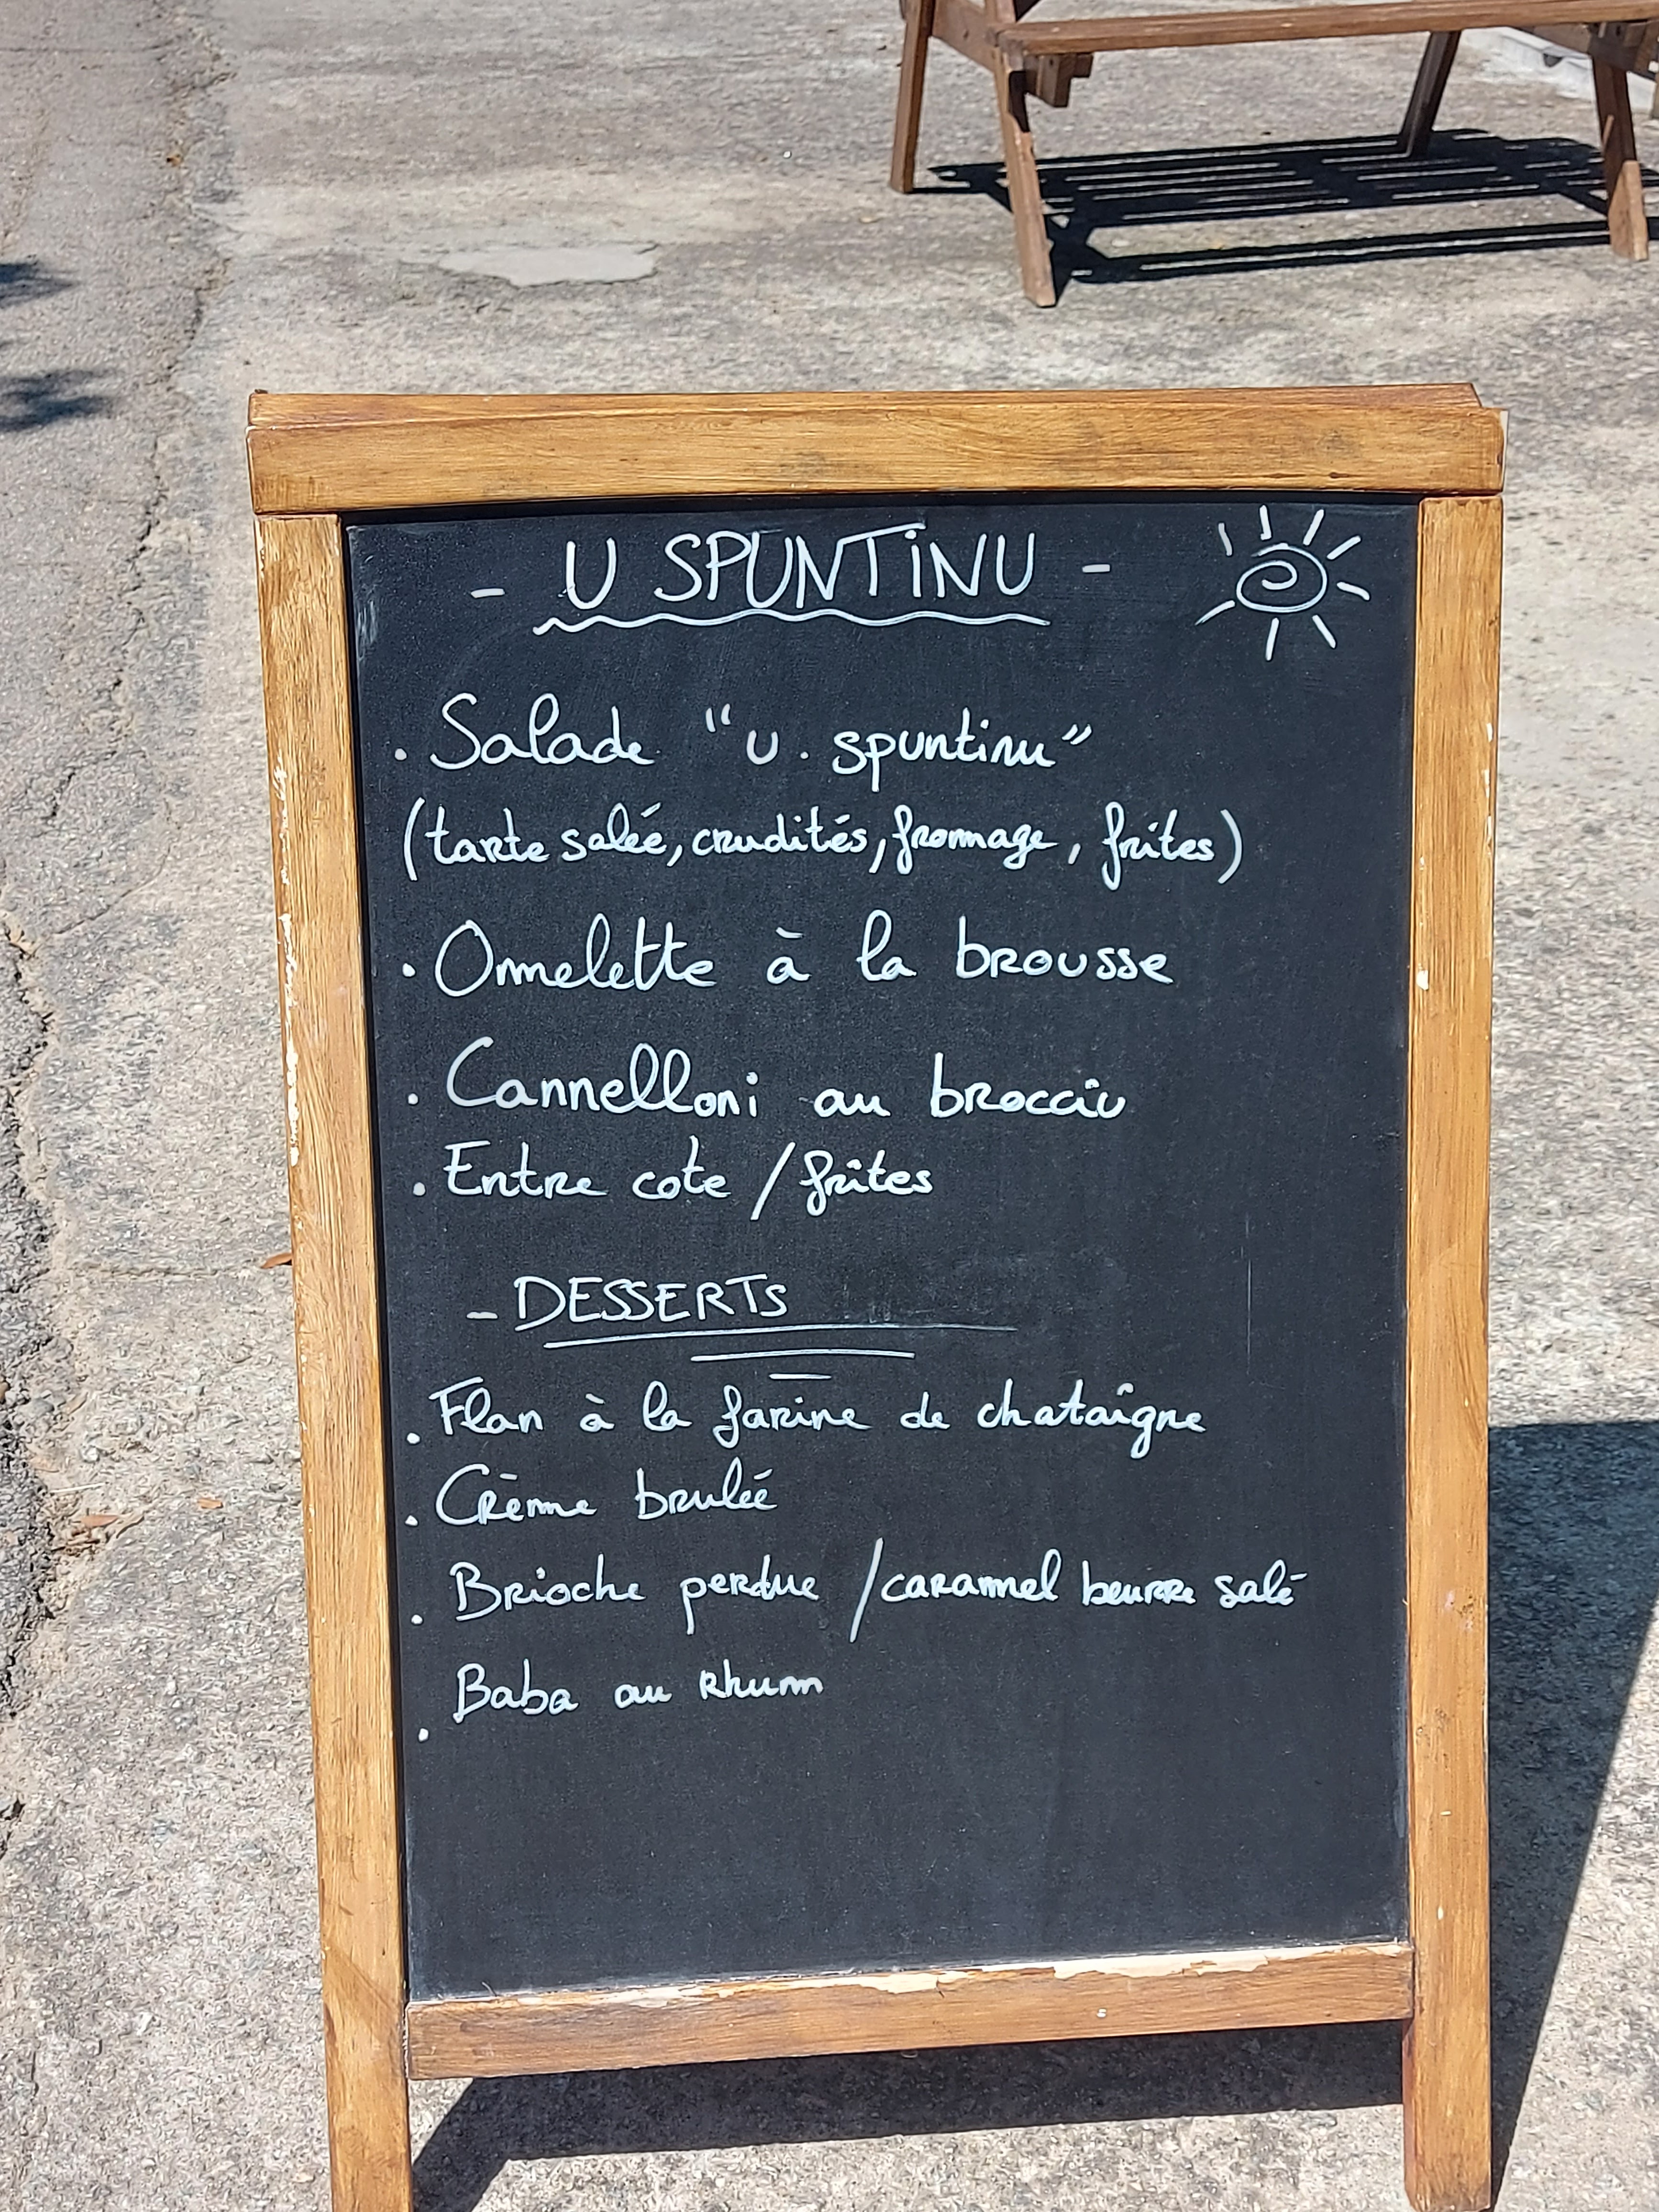 - U SPUNTiNU -
. Salade "U. spuntinu"
(tarte salée, crudités, fromage, frites)
. Ommelette à la brousse
. Cannelloni au brocciu
. Entre cote / frites
- DESSERTS
. Flan à la farine de chataîgne
. Crème brulée
. Brioche perdue / caramel beurre salé
. Baba au rhum